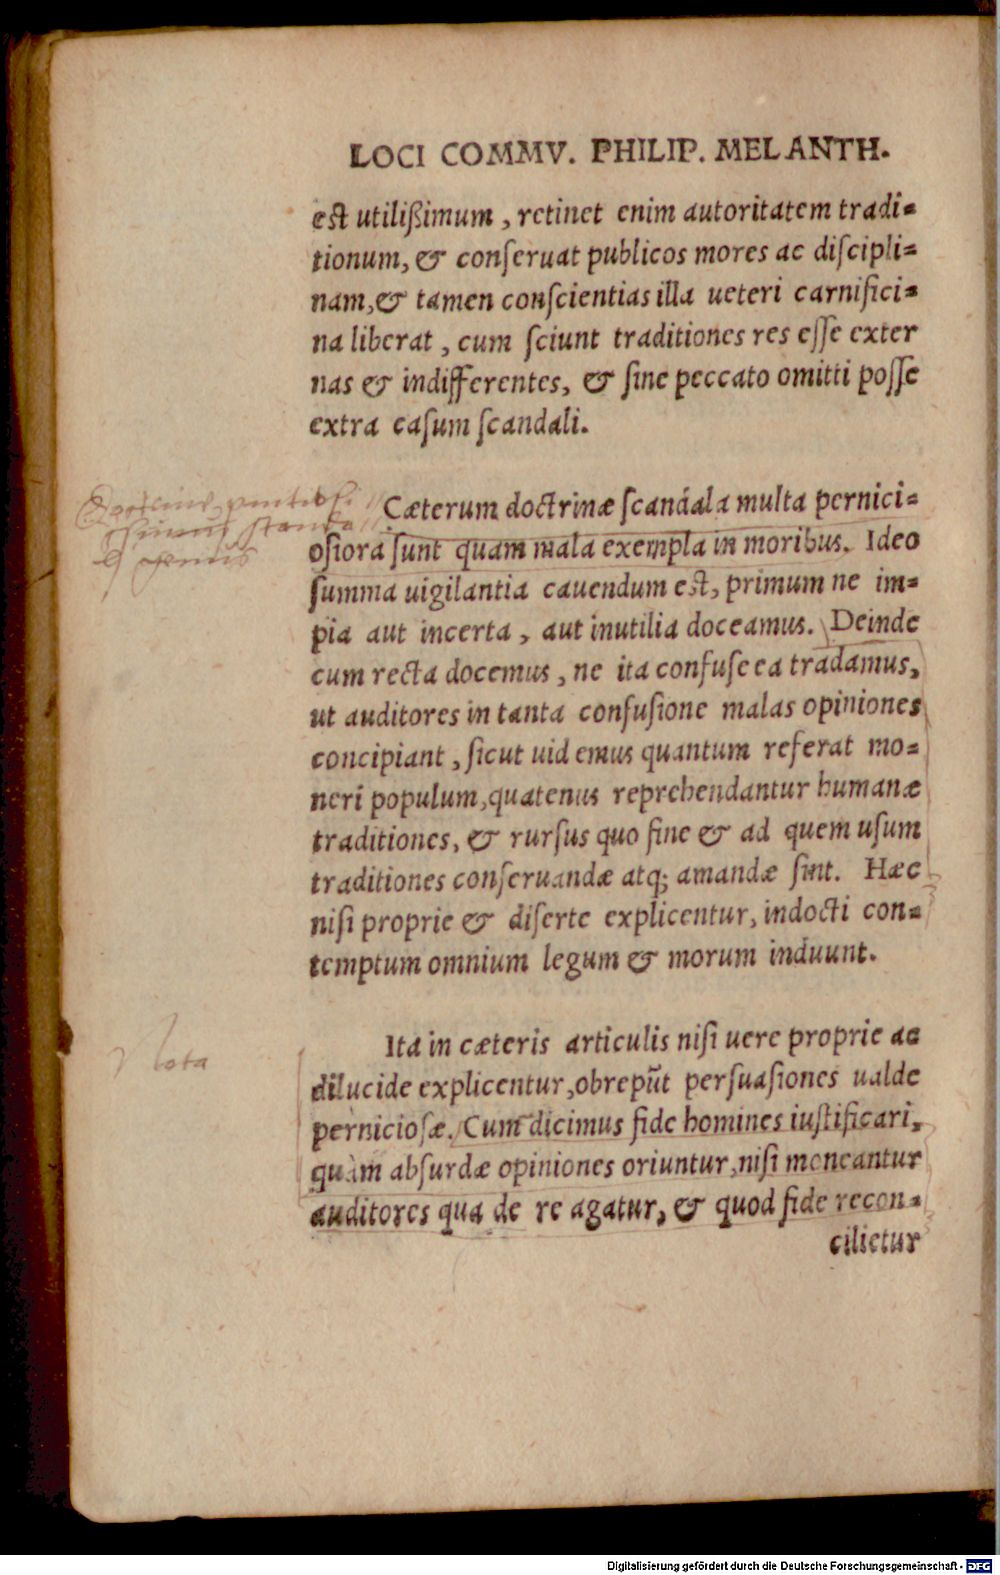 LOCI COMMV. PHILIP. MELANTH.
est utilißimum, retinet enim autoritatem tradi=
tionum, & conſeruat publicos mores ac diſcipli=
nam, & tamen conſcientias illa ueteri carnifici=
na liberat, cum ſciunt traditiones res eſſe exter
nas & indifferentes, & ſine peccato omitti poſſe
extra caſum ſcandali.
Cæterum doctrinæ ſcandala multa pernici=
oſiora ſunt quam mala exempla in moribus. Ideo
ſumma uigilantia cauendum est, primum ne im=
pia aut incerta, aut inutilia doceamus. Deinde
cum recta docemus, ne ita confuſe ea tradamus,
ut auditores in tanta confuſione malas opiniones
concipiant, ſicut uidemus quantum referat mo=
neri populum, quatenus reprehendantur humanæ
traditiones, & rurſus quo fine & ad quem uſum
traditiones conſeruandæ atq; amandæ ſint. Hæc
niſi proprie & diſerte explicentur, indocti con=
temptum omnium legum & morum induunt.
Ita in cæteris articulis niſi uere proprie ac
dilucide explicentur, obrepũt perſuaſiones ualde
pernicioſæ. Cum dicimus fide homines iuſtificari,
quàm abſurdæ opiniones oriuntur, niſi moneantur
auditores qua de re agatur, & quod fide recon=
cilietur
Nota
Digitalisierung gefördert durch die Deutsche Forschungsgemeinschaft - DFG